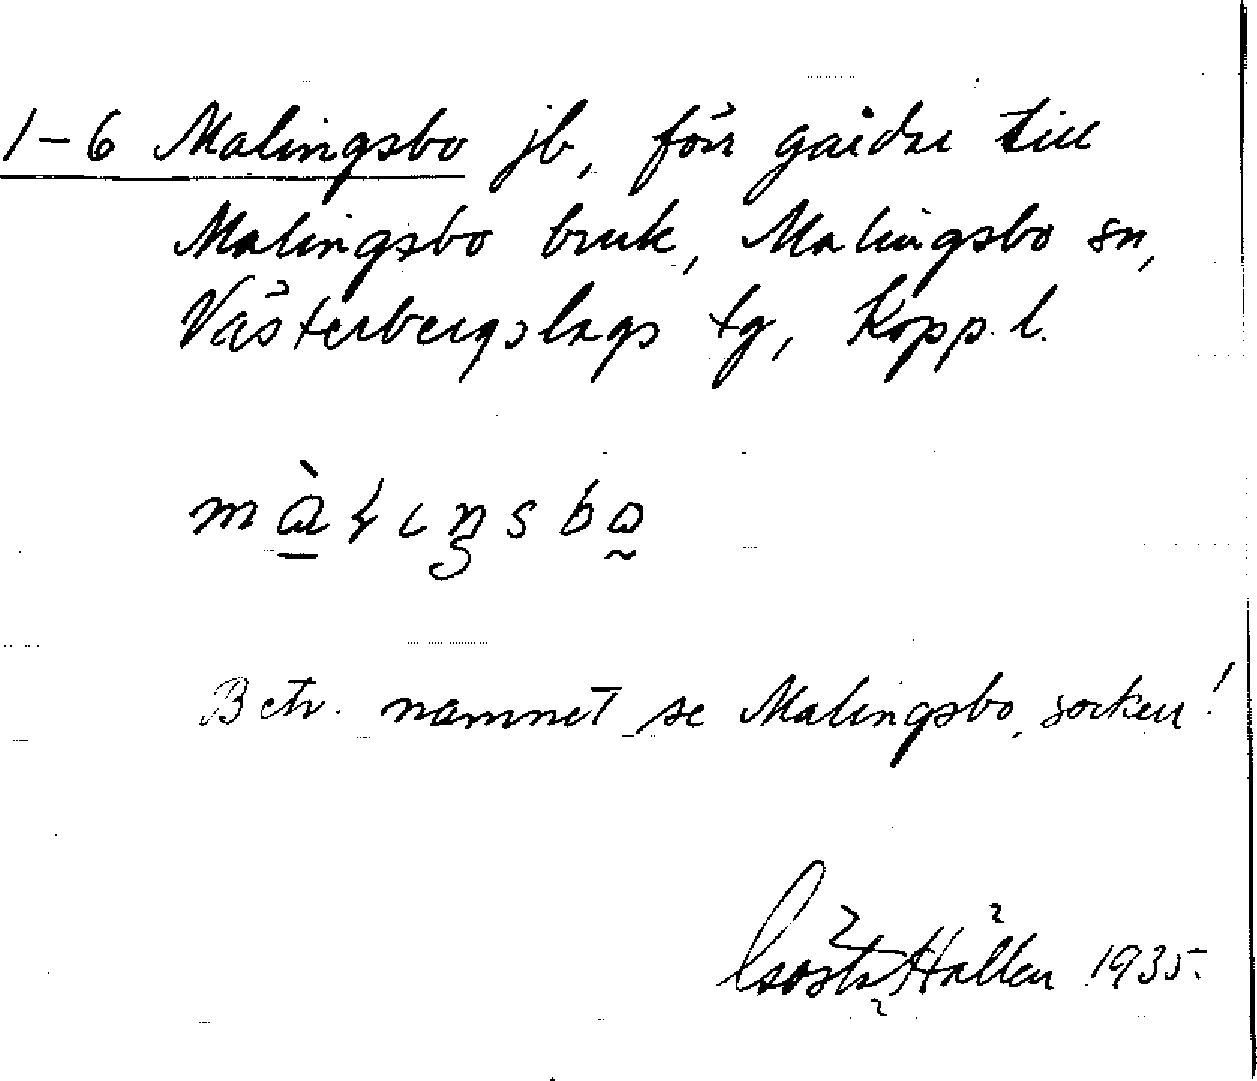 1-6 Malingsbo jb, förr gårdar till
Malingsbo bruk, Malingsbo sn,
Västerbergslags tg, Kopp. l.
Betr. namnet se Malingsbo, socken!
Gösta Hallen 1935.